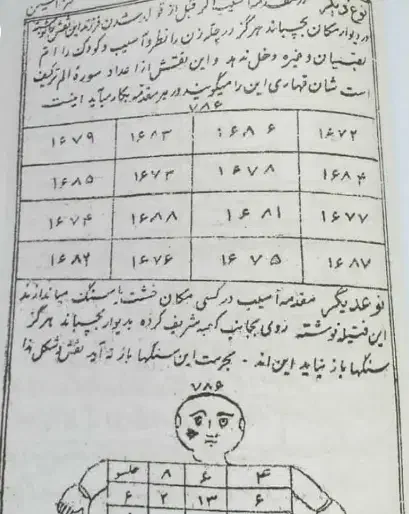 نوعدیگر
در دیوار مکان بچسپاند هرگز در چله زن را نظر و آسیب و کودک را ام
الصبیان وغیره دخل ندهد واین نقش از اعداد سورهٔ الم ترکیف
است شان قهاری این را میگویند در هر مقدمه بکار میآید اینست
۷۸۶
۱۶۷۹ ۱۶۸۳ ۱۶۸۶ ۱۶۷۲
۱۶۸۵ ۱۶۷۳ ۱۶۷۸ ۱۶۸۴
۱۶۷۴ ۱۶۸۸ ۱۶۸۱ ۱۶۷۷
۱۶۸۲ ۱۶۷۶ ۱۶۷۵ ۱۶۸۷
نوعدیگر مقدمه آسیب در کسی مکان خشت یا سنگ میاندازند
این فتیله نوشته روی بجانب کعبه شریف کرده بدیوار بچسپاند هرگز
سنگها باز نیاید این اند - بحرمت این سنگها باز نه آید نقش و شکل هذا
۷۸۶
۸ ۶ ۴
۶ ۲ ۱۳ ۶